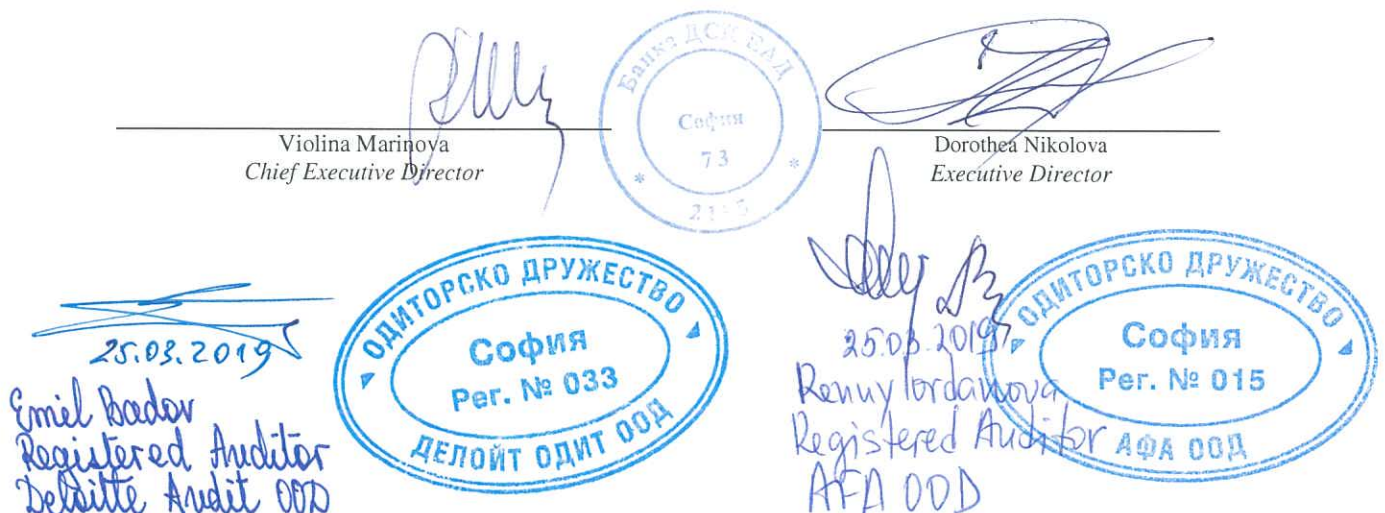 Банка ДСК ЕАД
София
73
Violina Marinova
Chief Executive Director
Dorothea Nikolova
Executive Director
25.03.2019
Emil Badov
Registered Auditor
Deloitte Audit OOD
ОДИТОРСКО ДРУЖЕСТВО
София
Рег. № 033
ДЕЛОЙТ ОДИТ ООД
25.03.2019
Renny Iordanova
Registered Auditor
AFA OOD
ОДИТОРСКО ДРУЖЕСТВО
София
Рег. № 015
АФА ООД